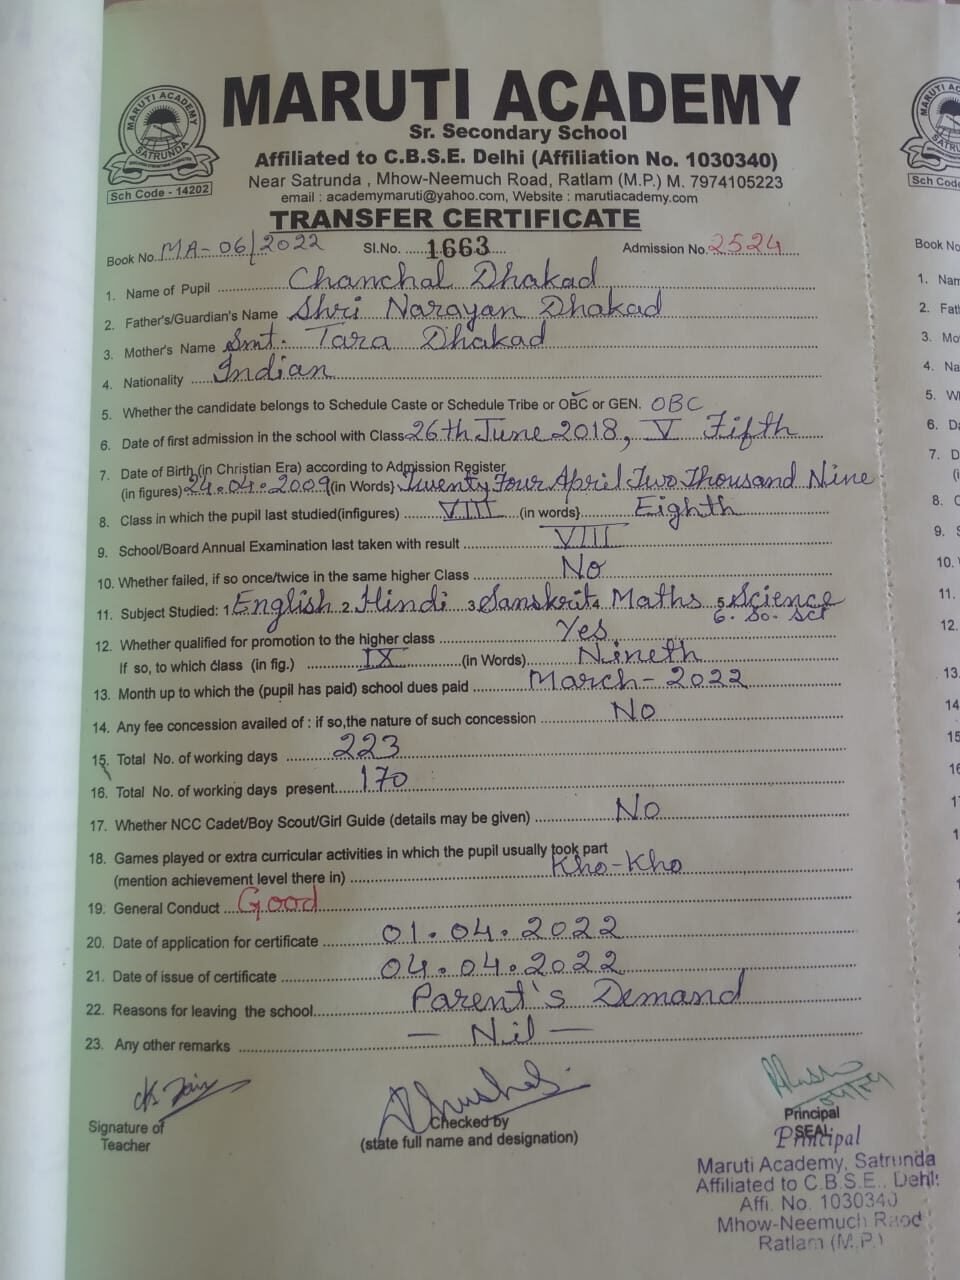 MARUTI ACADEMY
SATRUNDA
Sch Code - 14202
MARUTI ACADEMY
Sr. Secondary School
Affiliated to C.B.S.E. Delhi (Affiliation No. 1030340)
Near Satrunda , Mhow-Neemuch Road, Ratlam (M.P.) M. 7974105223
email : academymaruti@yahoo.com, Website : marutiacademy.com
TRANSFER CERTIFICATE
Book No. MA-06/2022 Sl.No. ......1663.... Admission No. 2524
1. Name of Pupil Chanchal Dhakad
2. Father's/Guardian's Name Shri Narayan Dhakad
3. Mother's Name Smt. Tara Dhakad
4. Nationality Indian
5. Whether the candidate belongs to Schedule Caste or Schedule Tribe or OBC or GEN. OBC
6. Date of first admission in the school with Class 26th June 2018, V Fifth
7. Date of Birth (in Christian Era) according to Admission Register
(in figures) 24.04.2009 (in Words} Twenty Four April Two Thousand Nine
8. Class in which the pupil last studied(infigures) VIII (in words} Eighth
9. School/Board Annual Examination last taken with result VIII
10. Whether failed, if so once/twice in the same higher Class No
11. Subject Studied: 1 English 2. Hindi 3. Sanskrit 4. Maths 5. Science
6. So. Sci
12. Whether qualified for promotion to the higher class Yes
If so, to which class (in fig.) IX (in Words) Nineth
13. Month up to which the (pupil has paid) school dues paid March-2022
14. Any fee concession availed of : if so,the nature of such concession No
15. Total No. of working days 223
16. Total No. of working days present 170
17. Whether NCC Cadet/Boy Scout/Girl Guide (details may be given) No
18. Games played or extra curricular activities in which the pupil usually took part
(mention achievement level there in) Kho-Kho
19. General Conduct Good
20. Date of application for certificate 01.04.2022
21. Date of issue of certificate 04.04.2022
22. Reasons for leaving the school Parent's Demand
23. Any other remarks — Nil —
Signature of
Teacher
Checked by
(state full name and designation)
Principal
SEAL
Principal
Maruti Academy, Satrunda
Affiliated to C.B.S.E., Dehli
Affi. No. 1030340
Mhow-Neemuch Raod
Ratlam (M.P.)
Book No